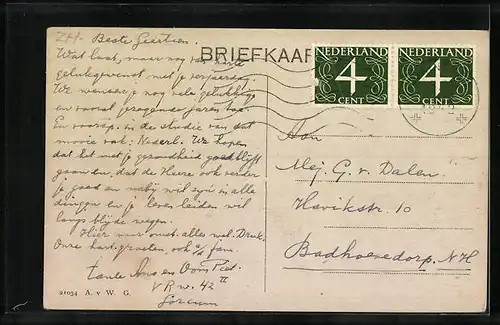 Beste Geertien.
BRIEFKAAR
Wat laat, maar nog van harte
gelukgewenst met je verjaardag.
We wensche je nog vele gelukkige
en vooral gezegende jaren toe.
En voorsp. in de studie van dat
mooie vak: Nederl. We hopen
dat het met je gezondheid goed blijft
gaan en, dat de Heere ook verder
je goed en nabij wil zijn in alle
dingen en je leven leiden wil
langs blijde wegen.
Hier met ons alles wel. Druk.
Onze hart. groeten, ook a/d fam.
tante en Oom Piet.
V R w. 42 II
21034 A. v. W. G.
NEDERLAND
4
CENT
NEDERLAND
4
CENT
Aan
Mej. G. v. Dalen
Havikstr. 10
Badhoevedorp. N H